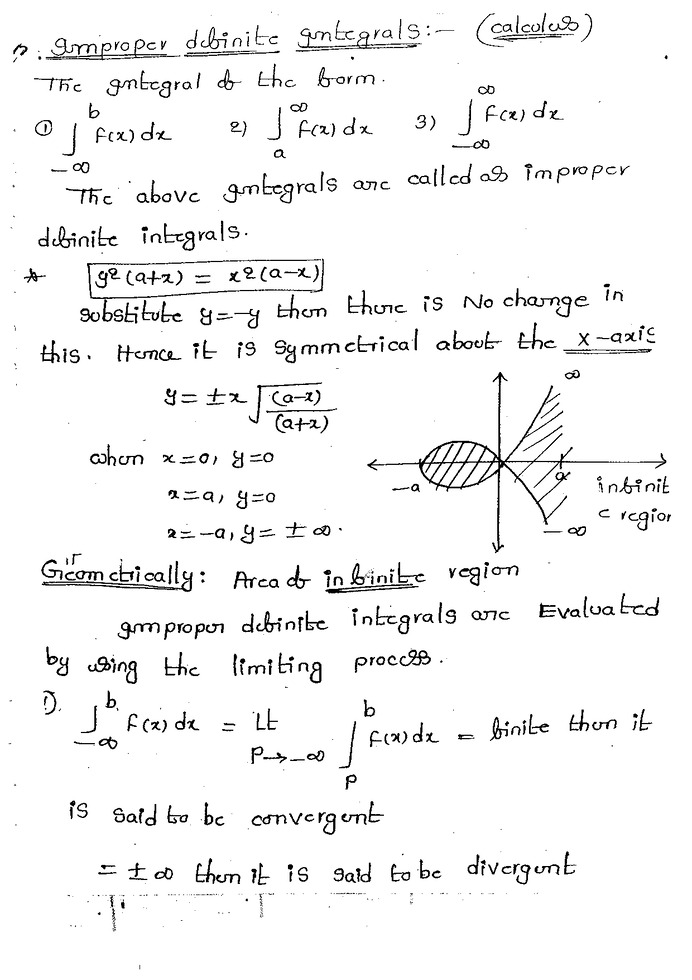 Improper definite Integrals:- (calculus)
The Integral of the form.
① ∫_{-∞}^{b} f(x) dx 2) ∫_{a}^{∞} f(x) dx 3) ∫_{-∞}^{∞} f(x) dx
The above Integrals are called as improper
definite integrals.
* y²(a+x) = x²(a-x)
substitute y=-y then there is No change in
this. Hence it is symmetrical about the x-axis
y = ±x √((a-x)/(a+x))
when x=0, y=0
x=a, y=0
x=-a, y= ±∞.
∞
-a
a
infinit
e region
-∞
Geometrically: Area of infinite region
Improper definite integrals are Evaluated
by using the limiting process.
1). ∫_{-∞}^{b} f(x) dx = Lt_{P→-∞} ∫_{P}^{b} f(x) dx = finite then it
is said to be convergent
= ±∞ then it is said to be divergent